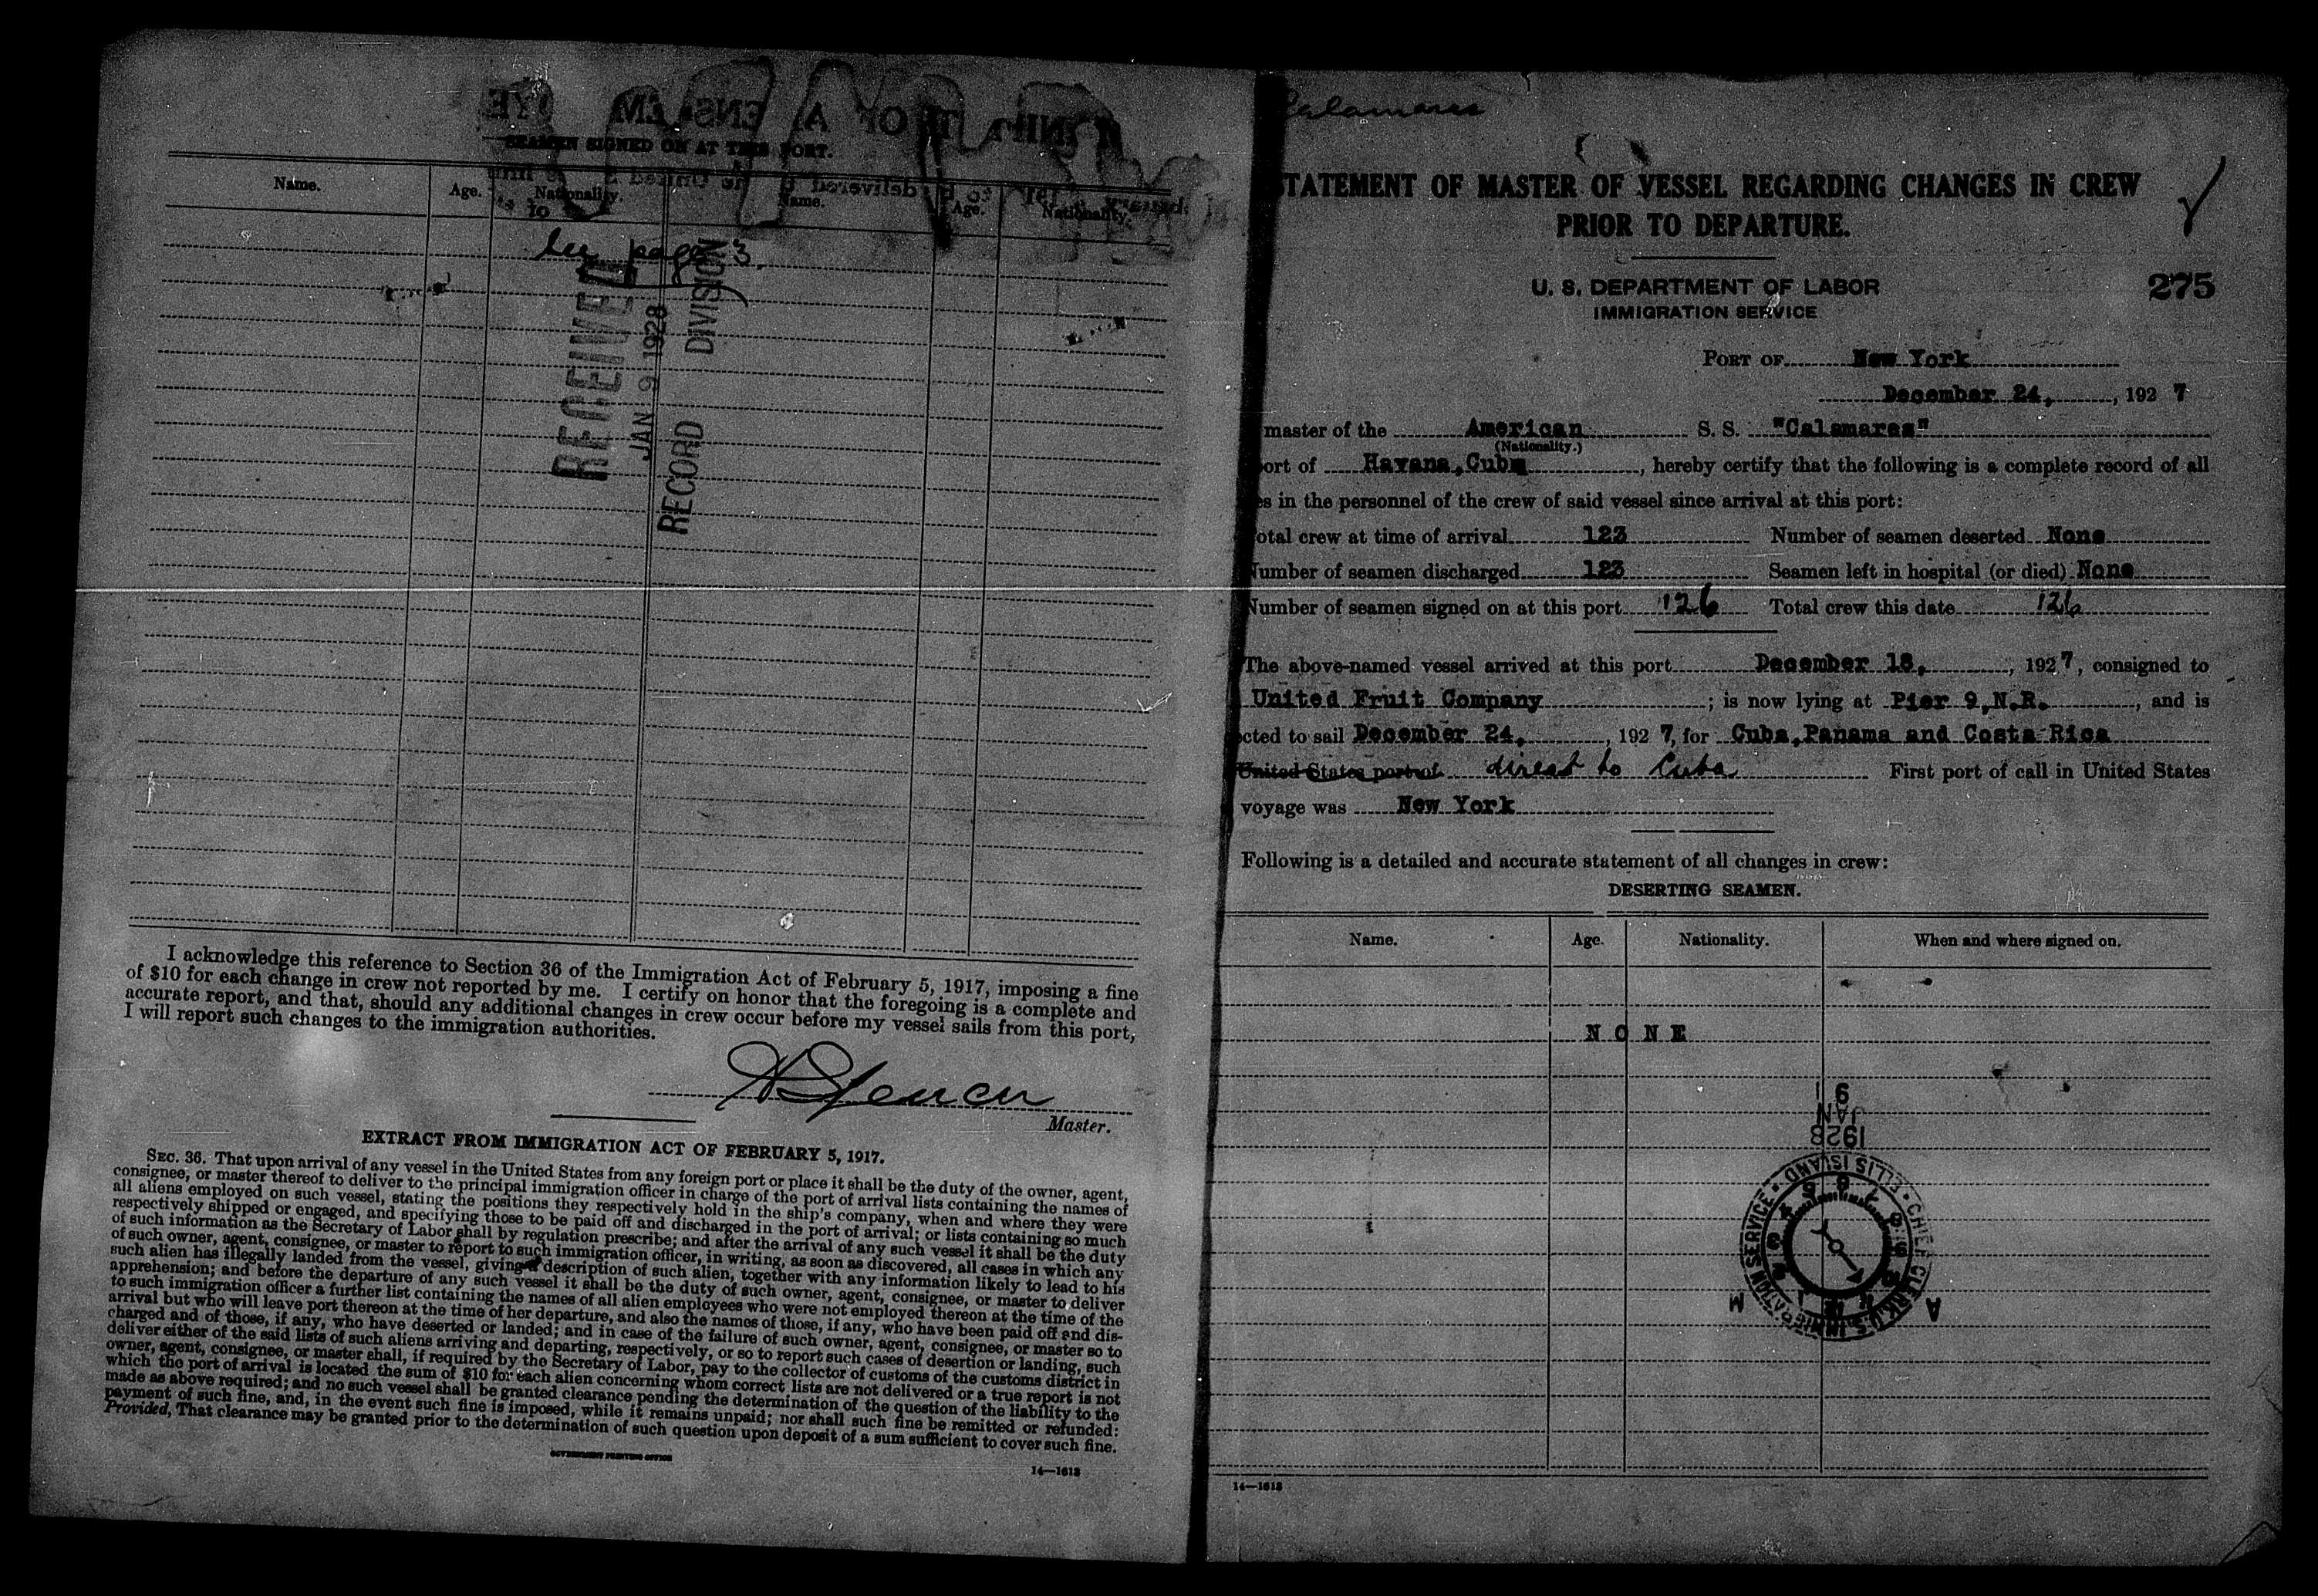 SEAMEN SIGNED ON AT THIS PORT.
Name. Age. Nationality. Name. Age. Nationality.
See page 3.
RECEIVED
JAN 9 1928
RECORD DIVISION
I acknowledge this reference to Section 36 of the Immigration Act of February 5, 1917, imposing a fine
of $10 for each change in crew not reported by me. I certify on honor that the foregoing is a complete and
accurate report, and that, should any additional changes in crew occur before my vessel sails from this port,
I will report such changes to the immigration authorities.
Spencer
Master.
EXTRACT FROM IMMIGRATION ACT OF FEBRUARY 5, 1917.
SEC. 36. That upon arrival of any vessel in the United States from any foreign port or place it shall be the duty of the owner, agent,
consignee, or master thereof to deliver to the principal immigration officer in charge of the port of arrival lists containing the names of
all aliens employed on such vessel, stating the positions they respectively hold in the ship's company, when and where they were
respectively shipped or engaged, and specifying those to be paid off and discharged in the port of arrival; or lists containing so much
of such information as the Secretary of Labor shall by regulation prescribe; and after the arrival of any such vessel it shall be the duty
of such owner, agent, consignee, or master to report to such immigration officer, in writing, as soon as discovered, all cases in which any
such alien has illegally landed from the vessel, giving a description of such alien, together with any information likely to lead to his
apprehension; and before the departure of any such vessel it shall be the duty of such owner, agent, consignee, or master to deliver
to such immigration officer a further list containing the names of all alien employees who were not employed thereon at the time of the
arrival but who will leave port thereon at the time of her departure, and also the names of those, if any, who have been paid off and dis-
charged and of those, if any, who have deserted or landed; and in case of the failure of such owner, agent, consignee, or master so to
deliver either of the said lists of such aliens arriving and departing, respectively, or so to report such cases of desertion or landing, such
owner, agent, consignee, or master shall, if required by the Secretary of Labor, pay to the collector of customs of the customs district in
which the port of arrival is located the sum of $10 for each alien concerning whom correct lists are not delivered or a true report is not
made as above required; and no such vessel shall be granted clearance pending the determination of the question of the liability to the
payment of such fine, and, in the event such fine is imposed, while it remains unpaid; nor shall such fine be remitted or refunded:
Provided, That clearance may be granted prior to the determination of such question upon deposit of a sum sufficient to cover such fine.
GOVERNMENT PRINTING OFFICE
14—1613
Calamares
STATEMENT OF MASTER OF VESSEL REGARDING CHANGES IN CREW
PRIOR TO DEPARTURE.
U. S. DEPARTMENT OF LABOR
IMMIGRATION SERVICE
275
PORT OF New York
December 24, , 1927
master of the American S. S. "Calamares"
(Nationality.)
ort of Havana, Cuba , hereby certify that the following is a complete record of all
es in the personnel of the crew of said vessel since arrival at this port:
otal crew at time of arrival 123 Number of seamen deserted None
Number of seamen discharged 123 Seamen left in hospital (or died) None
Number of seamen signed on at this port 126 Total crew this date 126
The above-named vessel arrived at this port December 18, , 1927, consigned to
United Fruit Company ; is now lying at Pier 9, N.R. , and is
cted to sail December 24, , 1927, for Cuba, Panama and Costa Rica
United States port of direct to Cuba First port of call in United States
voyage was New York
Following is a detailed and accurate statement of all changes in crew:
DESERTING SEAMEN.
Name. Age. Nationality. When and where signed on.
NONE
1928
JAN
9
CHIEF CLERK, U.S. IMMIGRATION SERVICE • ELLIS ISLAND •
A M
14—1613